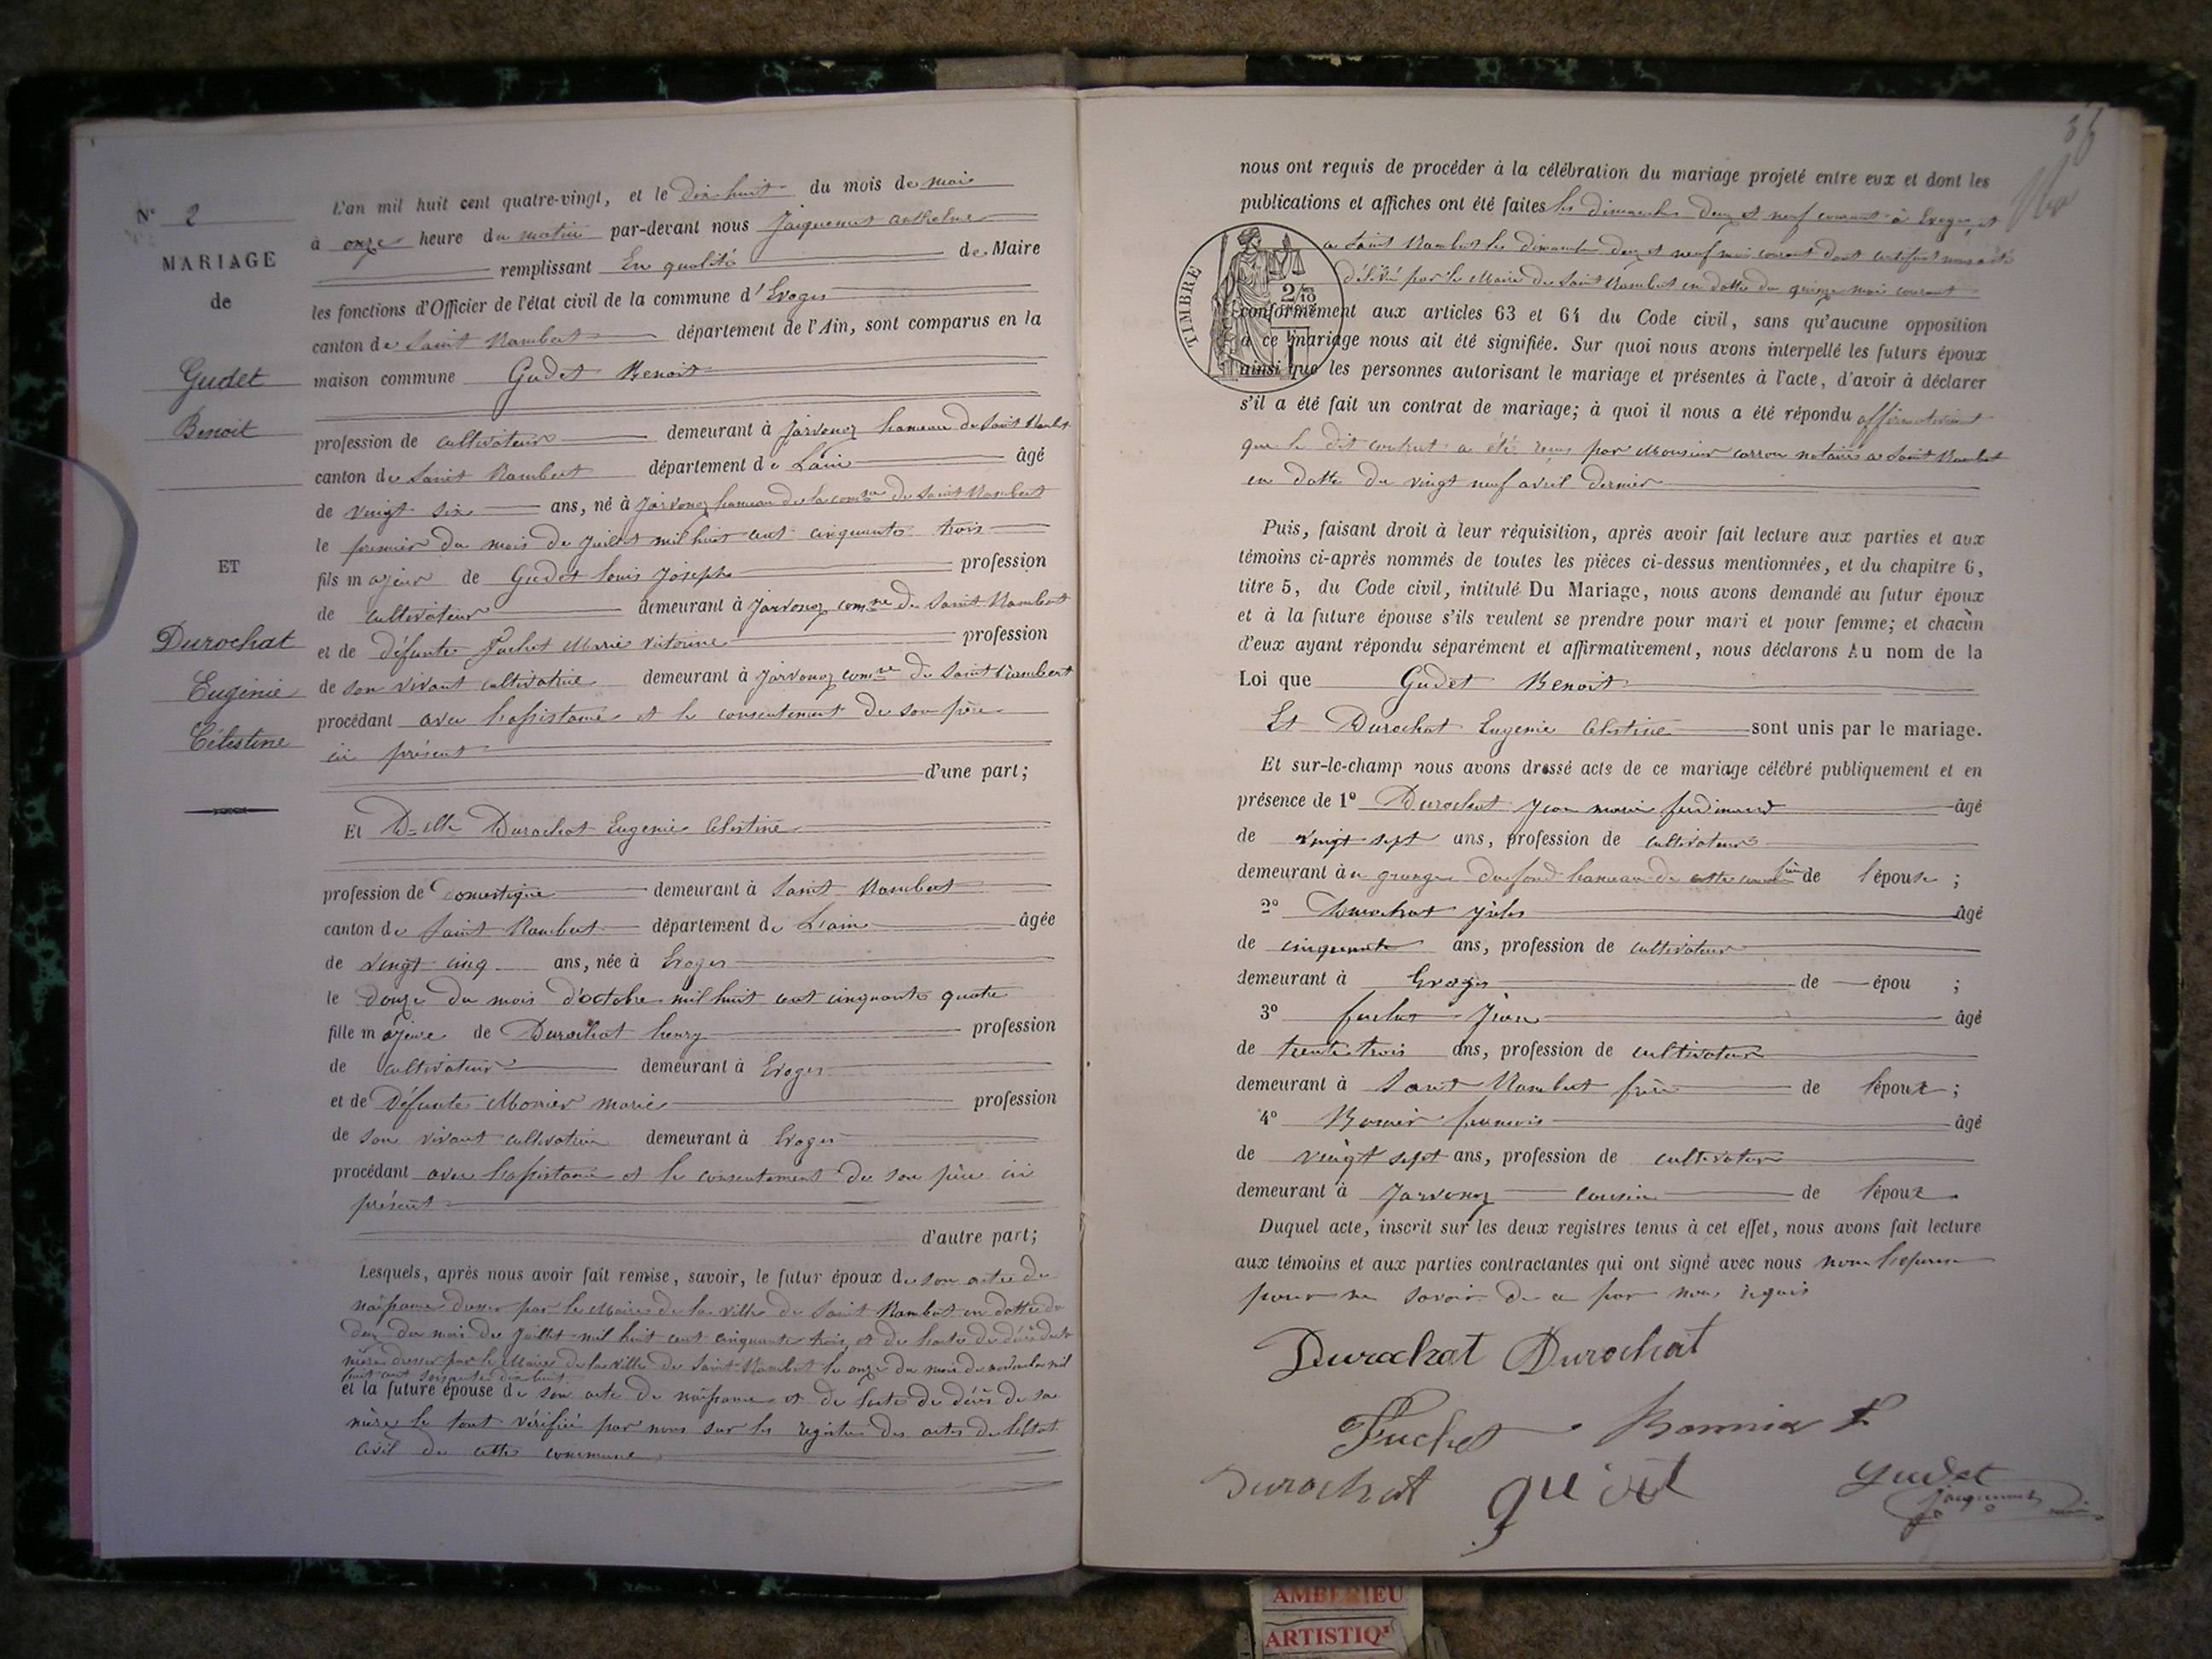 N° 2
MARIAGE
de
Gudet
Benoit
ET
Durochat
Eugénie
Célestine
L'an mil huit cent quatre-vingt, et le dix huit du mois de mai
à onze heure du matin par-devant nous Jacquemet anthelme
remplissant En qualité de Maire
les fonctions d'Officier de l'état civil de la commune d'Evoges
canton de Saint Rambert département de l'Ain, sont comparus en la
maison commune Gudet Benoit
profession de cultivateur demeurant à Jarvonoz hameau de Saint Rambert
canton de Saint Rambert département de Lain âgé
de vingt six ans, né à Jarvonoz hameau de la comne de Saint Rambert
le premier du mois de juillet mil huit cent cinquante trois
fils majeur de Gudet louis Joseph profession
de cultivateur demeurant à Jarvonoz comne de Saint Rambert
et de défunte Fuchet Marie victorine profession
de son vivant cultivatrice demeurant à Jarvonoz comne de Saint Rambert
procédant avec l'assistance et le consentement de son père
ici présent
d'une part;
Et D-elle Durochat Eugenie Celestine
profession de Domestique demeurant à Saint Rambert
canton de Saint Rambert département de Lain âgée
de vingt cinq ans, née à Evoges
le douze du mois d'octobre mil huit cent cinquante quatre
fille majeure de Durochat henry profession
de cultivateur demeurant à Evoges
et de Défunte Monier marie profession
de son vivant cultivatrice demeurant à Evoges
procédant avec l'assistance et le consentement de son père ici
présent
d'autre part;
Lesquels, après nous avoir fait remise, savoir, le futur époux de son acte de
naissance dresser par le Maire de la ville de Saint Rambert en datte du
deux du mois de Juillet mil huit cent cinquante trois, et de l'acte de décè de sa
mère dresser par le Maire de la ville de Saint Rambert le onze du mois de novembre mil
huit cent soixante dix huit
et la future épouse de son acte de naissance et de l'acte de décès de sa
mère le tout vérifié par nous sur les registres des actes de l'état
civil de cette commune
36
nous ont requis de procéder à la célébration du mariage projeté entre eux et dont les
publications et affiches ont été faites les dimanches deux et neuf courant à Evoges, et
a Saint Rambert les dimanches deux et neuf mai courant dont certificat nous a été
délivré par le Maire de Saint Rambert en datte du quinze mai courant
TIMBRE
2/10
conformément aux articles 63 et 64 du Code civil, sans qu'aucune opposition
à ce mariage nous ait été signifiée. Sur quoi nous avons interpellé les futurs époux
ainsi que les personnes autorisant le mariage et présentes à l'acte, d'avoir à déclarer
s'il a été fait un contrat de mariage; à quoi il nous a été répondu affirmativement
que le dit contrat a été reçu par Monsieur carron notaire a Saint Rambert
en datte du vingt neuf avril dernier
Puis, faisant droit à leur réquisition, après avoir fait lecture aux parties et aux
témoins ci-après nommés de toutes les pièces ci-dessus mentionnées, et du chapitre 6,
titre 5, du Code civil, intitulé Du Mariage, nous avons demandé au futur époux
et à la future épouse s'ils veulent se prendre pour mari et pour femme; et chacun
d'eux ayant répondu séparément et affirmativement, nous déclarons Au nom de la
Loi que Gudet Benoit
Et Durochat Eugenie Celestine sont unis par le mariage.
Et sur-le-champ nous avons dressé acte de ce mariage célébré publiquement et en
présence de 1° Durochat Jean marie ferdinand âgé
de vingt sept ans, profession de cultivateur
demeurant à grange Dufond hameau de cette de l'épouse ;
2° Durochat Jules âgé
de cinquante ans, profession de cultivateur
demeurant à Evoges de épou ;
3° fuchet Jean âgé
de trente trois ans, profession de cultivateur
demeurant à Saint Rambert frère de l'époux ;
4° Bonier francois âgé
de vingt sept ans, profession de cultivateur
demeurant à Jarvonoz cousin de l'époux
Duquel acte, inscrit sur les deux registres tenus à cet effet, nous avons fait lecture
aux témoins et aux parties contractantes qui ont signé avec nous non l'epouse
pour ne savoir de ce par nous requis
Durochat Durochat
Fuchet Bonnier F
Durochat Gudet
Jacquemet
AMBERIEU
ARTISTIQ